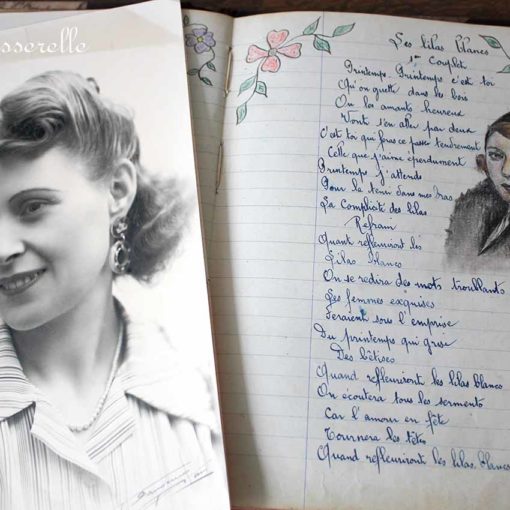 sserelle
Les lilas blancs
1er Couplet
Printemps Printemps c'est toi
Qu'on guette dans les bois
Ou les amants heureux
Vont s'en aller par deux
C'est toi qui feras se passer tendrement
Celle que j'aime éperdument
Printemps j'attends
Pour la tenir dans mes bras
La Complicité des lilas
Refrain
Quant refleuriront les
Lilas blancs
On se redira des mots troublants
Les femmes exquises
Seraient sous l'emprise
Du printemps qui grise
Des bêtises
Quand refleuriront les lilas blancs
On écoutera tous les serments
Car l'amour en fête
Tournera les têtes
Quand refleuriront les lilas blancs